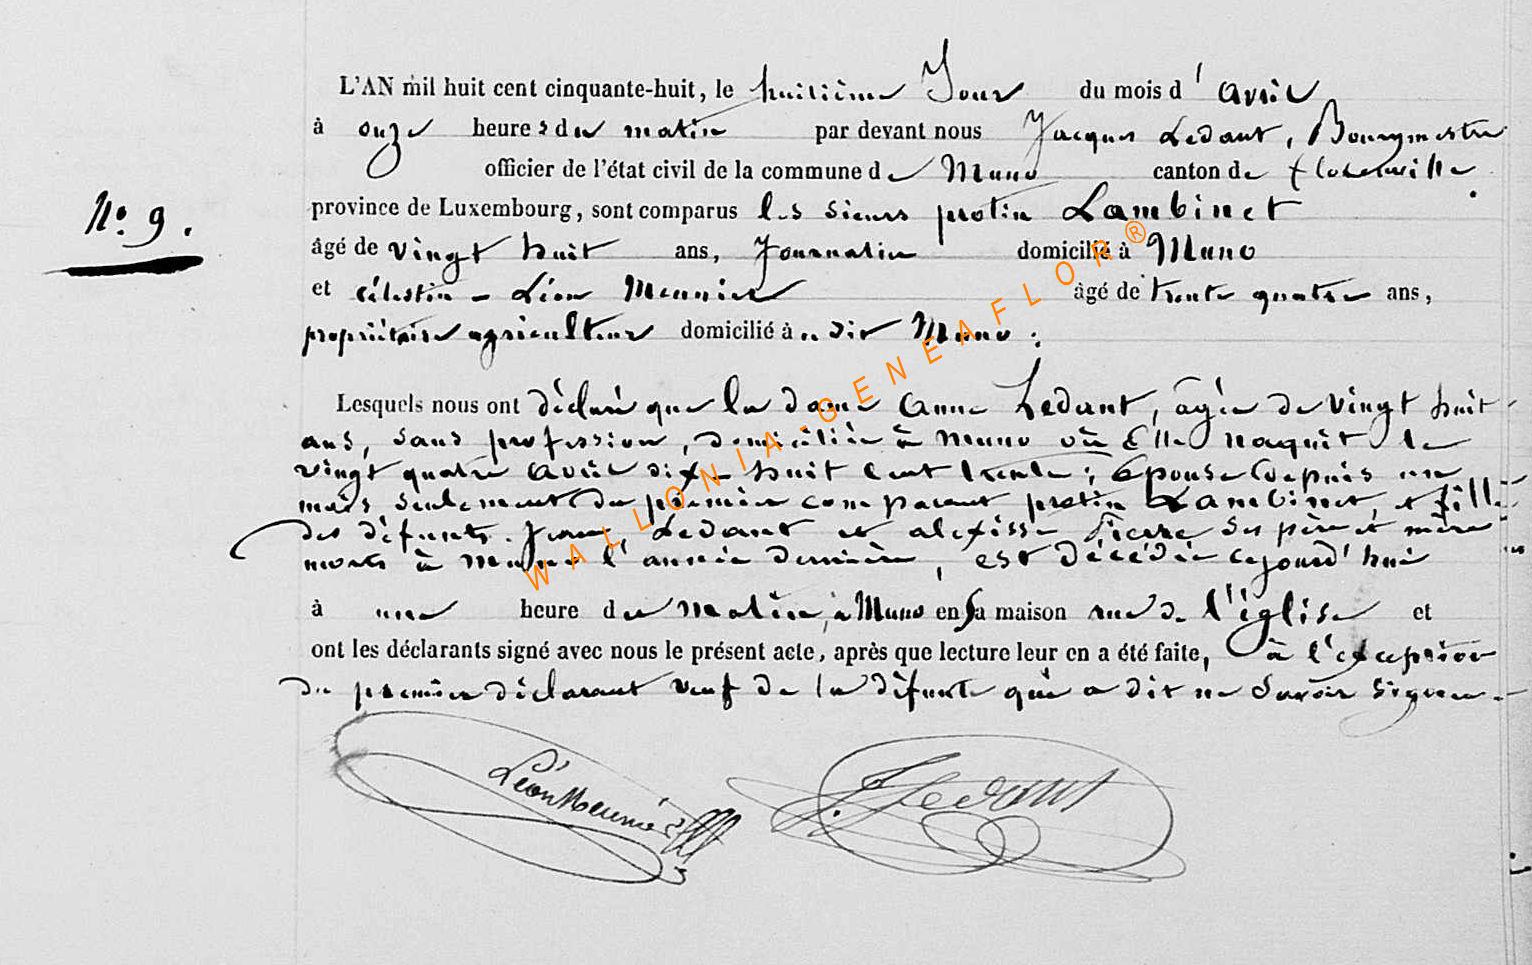 L'AN mil huit cent cinquante-huit, le huitième Jour du mois d'avril
à onze heures du matin par devant nous Jacques Ledant, Bourgmestre
officier de l'état civil de la commune de Muno canton de florenville
N.° 9.
province de Luxembourg, sont comparus les sieurs protin Lambinet
âgé de vingt huit ans, Journalier domicilié à Muno
et célestin - Léon Meunier âgé de trente quatre ans,
propriétaire agriculteur domicilié à dit Muno ;
Lesquels nous ont déclaré que la dame Anne Ledant, âgée de vingt huit
ans, sans profession, domiciliée à Muno où Elle naquit le
vingt quatre avril dix-huit cent trente ; épouse depuis un
mois seulement du premier comparant protin Lambinet, et fille
des défunts Ledant et alexisse Pierre ses père et mère
morts à Muno l'année dernière, est décédée cejourd'hui
à une heure du matin, à Muno en sa maison rue de l'église et
ont les déclarants signé avec nous le présent acte, après que lecture leur en a été faite, à l'exception
du premier déclarant veuf de la défunte qui a dit ne savoir signer.
Léon Meunier
J. Ledant
WALLONIA-GENEAFLOR®